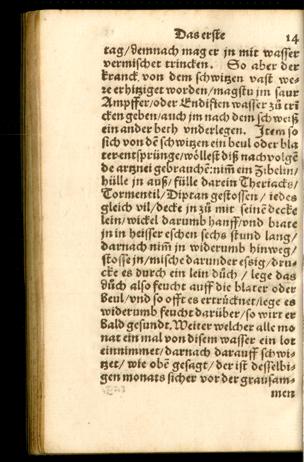 Das erste 14
tag/demnach mag er jn mit wasser
vermischet trincken. So aber der
kranck von dem schwitzen vast we-
re erhitziget worden/magstu jm saur
Ampffer/oder Endiften wasser zů tri
cken geben/auch jm nach dem schweiß
ein ander beth vnderlegen. Item so
sich von dē schwitzen ein beul oder bla
ter entsprünge/wöllest diß nachvolgē
de artznei gebrauchē:nim̄ ein Zibelin/
hülle jn auß/fülle darein Theriacks/
Tormentil/Diptan gestossen / iedes
gleich vil/decke jn zů mit seinē decke
lein/wickel darumb hanff/vnd brate
jn in heisser eschen sechs stund lang/
darnach nim̄ jn widerumb hinweg/
stosse jn/mische darunder essig/dru-
cke es durch ein lein důch / lege das
důch also feucht auff die blater oder
Beul/vnd so offt es ertrücknet/lege es
widerumb feucht darüber/so wirt er
Bald gesundt. Weiter welcher alle mo
nat ein mal von disem wasser ein lot
einnimmet/darnach darauff schwi-
tzet/ wie obē gesagt/der ist desselbi-
gen monats sicher vor der grausam-
men